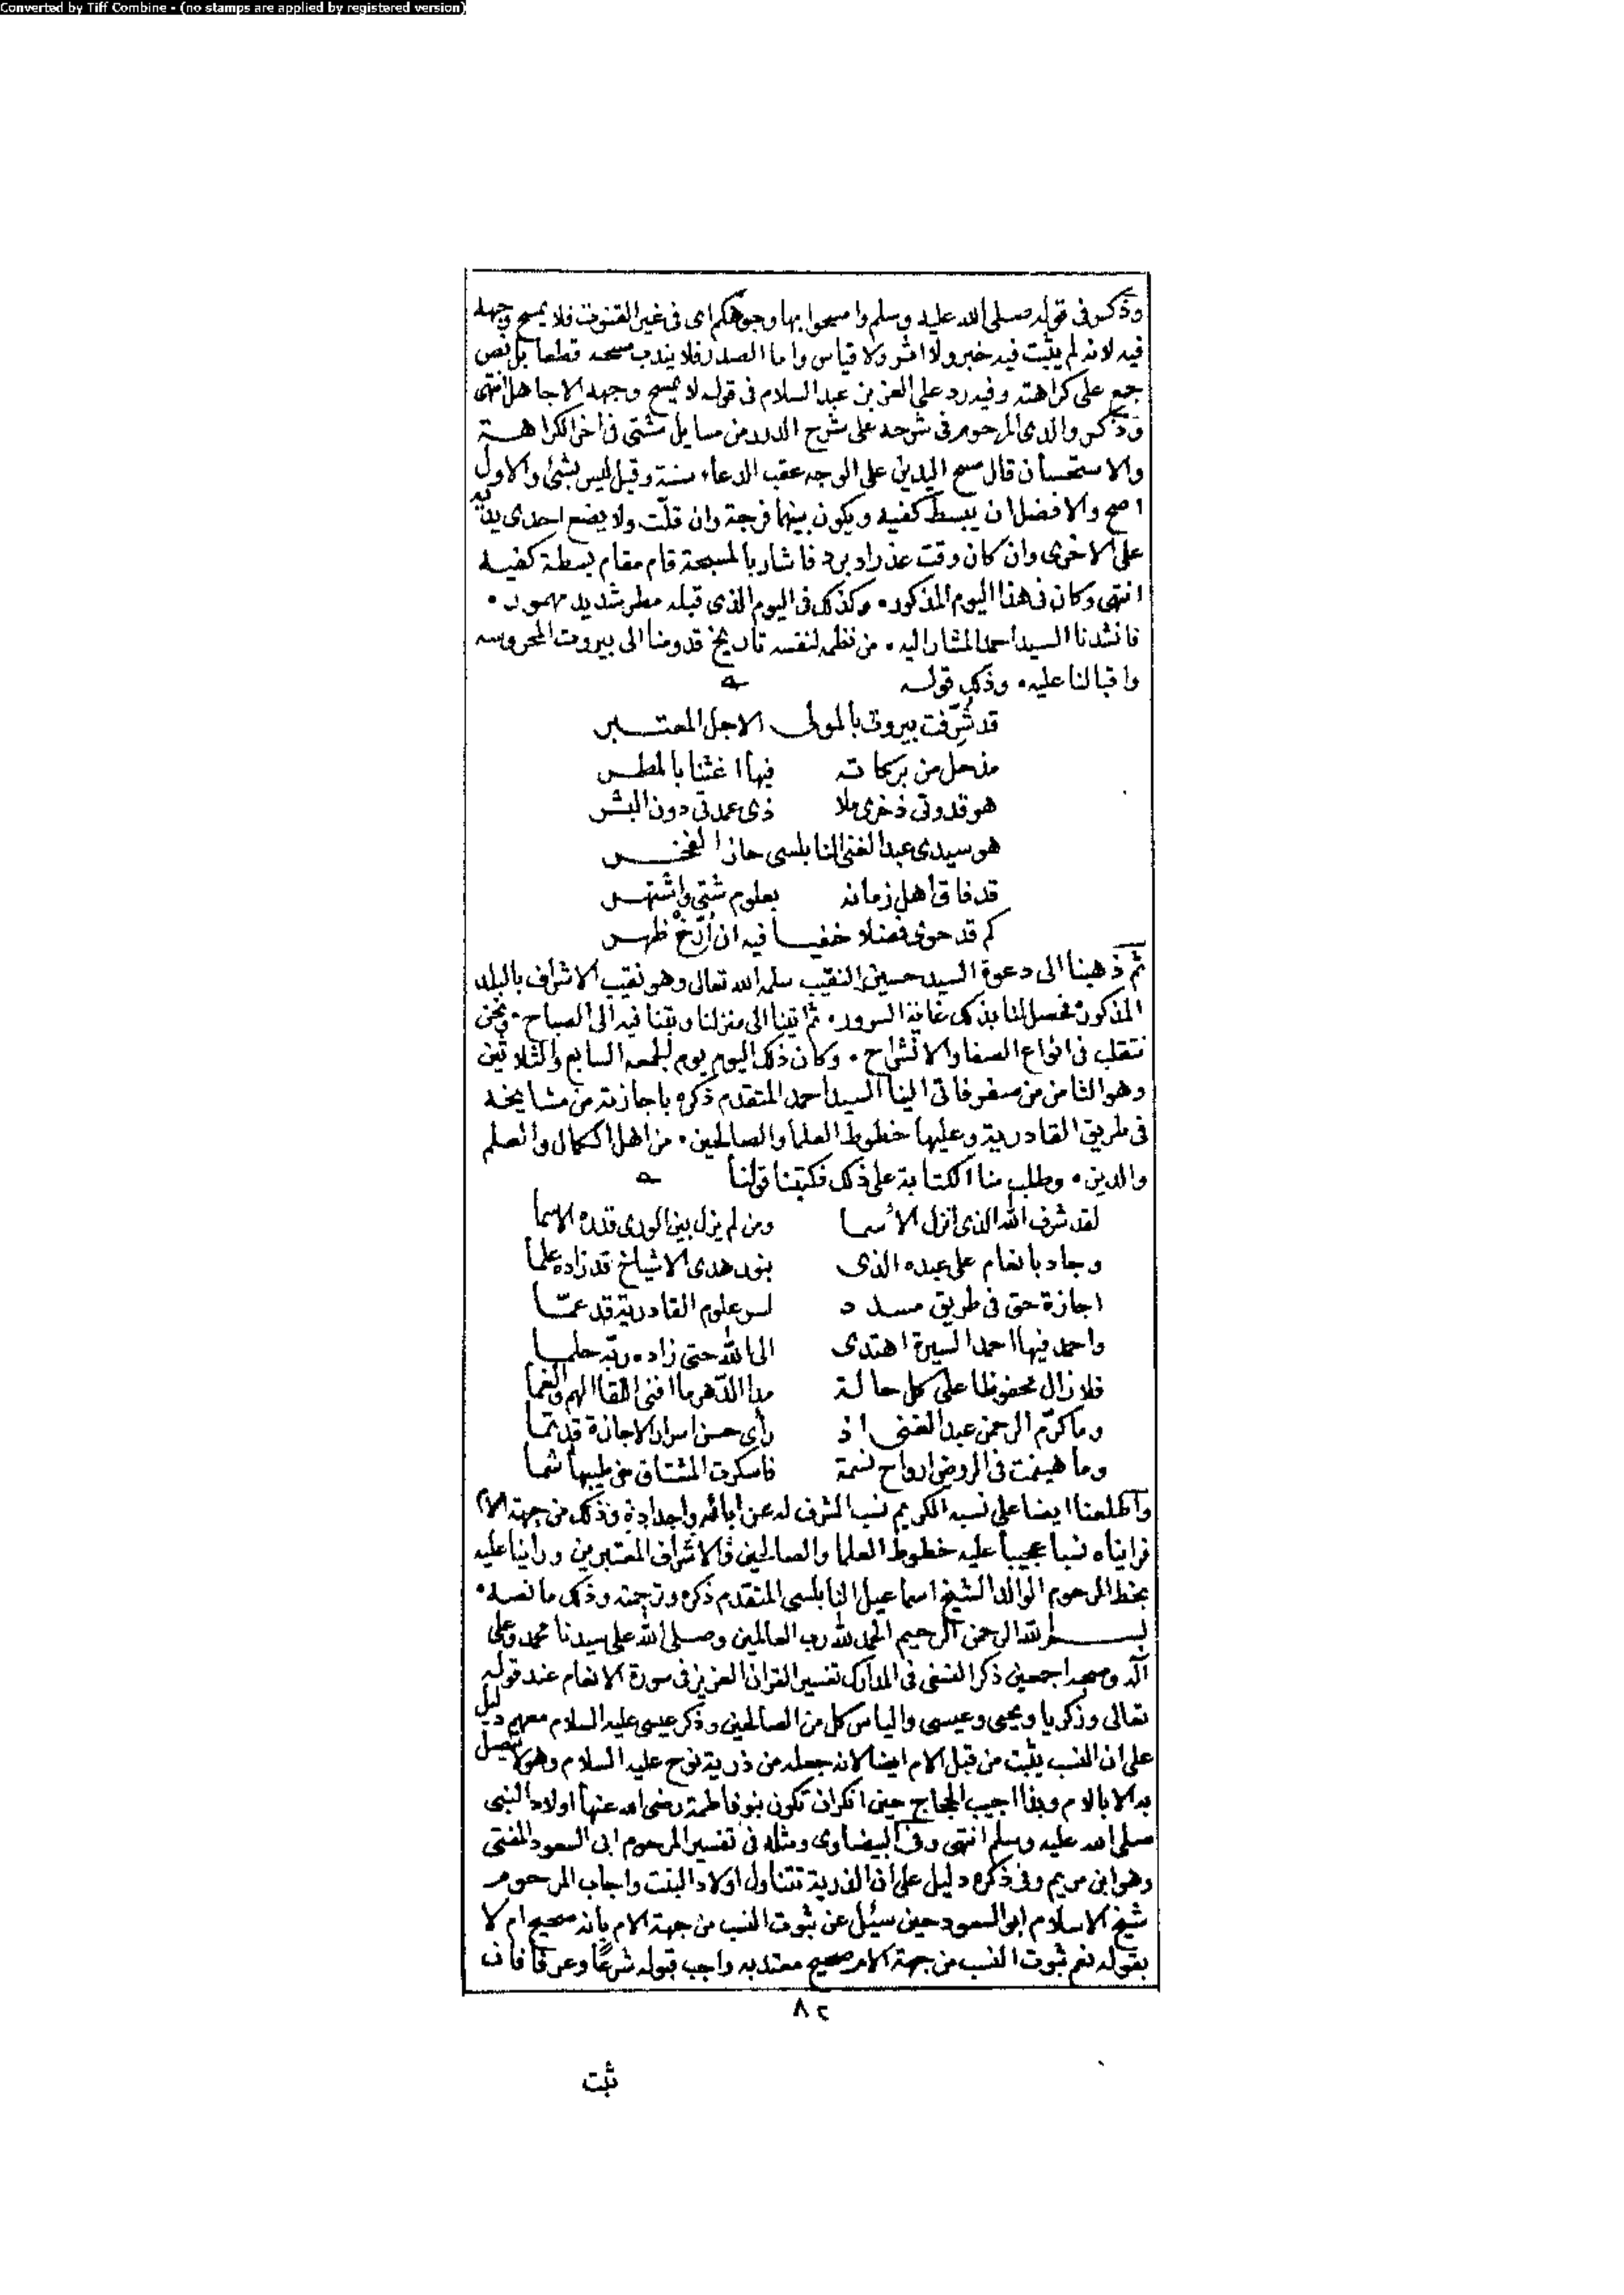 Converted by Tiff Combine - (no stamps are applied by registered version)
وذكر في قوله صلى الله عليه وسلم وامسحوا بها وجوهكم اى في غير القنوت فلا يمسح وجهه
فيه لانه لم يثبت فيه خبر ولا اثر ولا قياس واما الصدر فلا يندب مسحه قطعا بل نص
جمع على كراهته وفيه رد على العز بن عبد السلام في قوله لا يمسح وجهه الا جاهل انتهى
وذكر والدى المرحوم في شرحه على شرح الدرر من مسايل شتى في اخر الكراهــة
والاستحسان قال مسح اليدين على الوجه عقب الدعاء سنة وقيل ليس بشئ والاول
اصح والافضل ان يبسط كفيه ويكون بينهما فرجة وان قلّت ولا يضع احدى يديه
على الاخرى وان كان وقت عذر او برد فاشار بالمسبحة قام مقام بسطة كفيه
انتهى وكان في هذا اليوم المذكور • وكذلك في اليوم الذى قبله مطر شديد مهمور •
فانشدنا السيد احمد المشار اليه • من نظمه لنفسه تاريخ قدومنا الى بيروت المحروسه
واقبالنا عليه • وذلك قوله
قد شُرّفت بيروت بالمولى الاجل المعتــبر
مذ حل من بركاته فيها اغثنا بالمطــر
هو قدوتى ذخرى ملا ذى عمدتى دون البشر
هو سيدى عبد الغنى النابلسى حاز الفخــر
قد فاق اهل زمانه بعلوم شتى واشتهــر
كم قد حوى فضلا خفيــا فيه ان أرّخْ ظهــر
ثم ذهبنا الى دعوة السيد حسين النقيب سلمه الله تعالى وهو نقيب الاشراف بالبلد
المذكورة فحصل لنا بذلك غاية السرور • ثم اتينا الى منزلنا وبتنا فيه الى الصباح • ونحن
نتقلب في انواع الصفا والانشراح • وكان ذلك اليوم يوم الجمعه السابع والثلاثين
وهو الثامن من صفر فاتى الينا السيد احمد المتقدم ذكره باجازته من مشايخه
في طريق القادرية وعليها خطوط العلما والصالحين • من اهل الكمال والعلم
والدين • وطلب منا الكتابة على ذلك فكتبنا قولنا
لقد شرف الله الذى انزل الاسما ومن لم يزل بين الورى قدره الاسما
وجاد بانعام على عبده الذى بنور هدى الاشياخ قد زاده علما
اجازة حق في طريق مسدد لسر علوم القادرية قد عمّــا
واحمد فيها احمد السيرة اهتدى الى الله حتى زاده ربّه حلما
فلا زال محفوظا على كل حالة مدا الدّهر ما افنى اللقا الهم والغما
وما كرّم الرحمن عبد الغنى اذ رأى حسن اسرار الاجازة قد تما
وما هينمت في الروض ارواح نسمة فاسكرت المشتاق من طيبها شما
واطلعنا ايضا على نسبه الكريم نسب الشرف له عن ابائه واجداده وذلك من جهة الام
فرايناه نسبا عجيبا عليه خطوط العلما والصالحين والاشراف المعتبرين وراينا عليه
بخط المرحوم الوالد الشيخ اسماعيل النابلسى المتقدم ذكره وترجمته وذلك ما نصه •
بســم الله الرحمن الرحيم الحمد لله رب العالمين وصلى الله على سيدنا محمد وعلى
آله وصحبه اجمعين ذكر النسفى في المدارك تفسير القران العزيز في سورة الانعام عند قوله
تعالى وزكريا ويحيى وعيسى والياس كل من الصالحين وذكر عيسى عليه السلام معهم دليل
على ان النسب يثبت من قبل الام ايضا لانه جعله من ذرية نوح عليه السلام وهو لا يتصل
به الا بالام وبذا اجيب الحجاج حين انكر ان تكون بنو فاطمة رضى الله عنها اولاد النبى
صلى الله عليه وسلم انتهى وفي البيضاوى ومثله في تفسير المرحوم ابى السعود المفتى
وهو ابن مريم وفي ذكره دليل على ان الذرية تتناول اولاد البنت واجاب المرحوم
شيخ الاسلام ابو السعود حين سئل عن ثبوت النسب من جهة الام بانه صحيح ام لا
بقوله نعم ثبوت النسب من جهة الام صحيح معتد به واجب قبوله شرعًا وعرفا فان
٨٢
ثبت